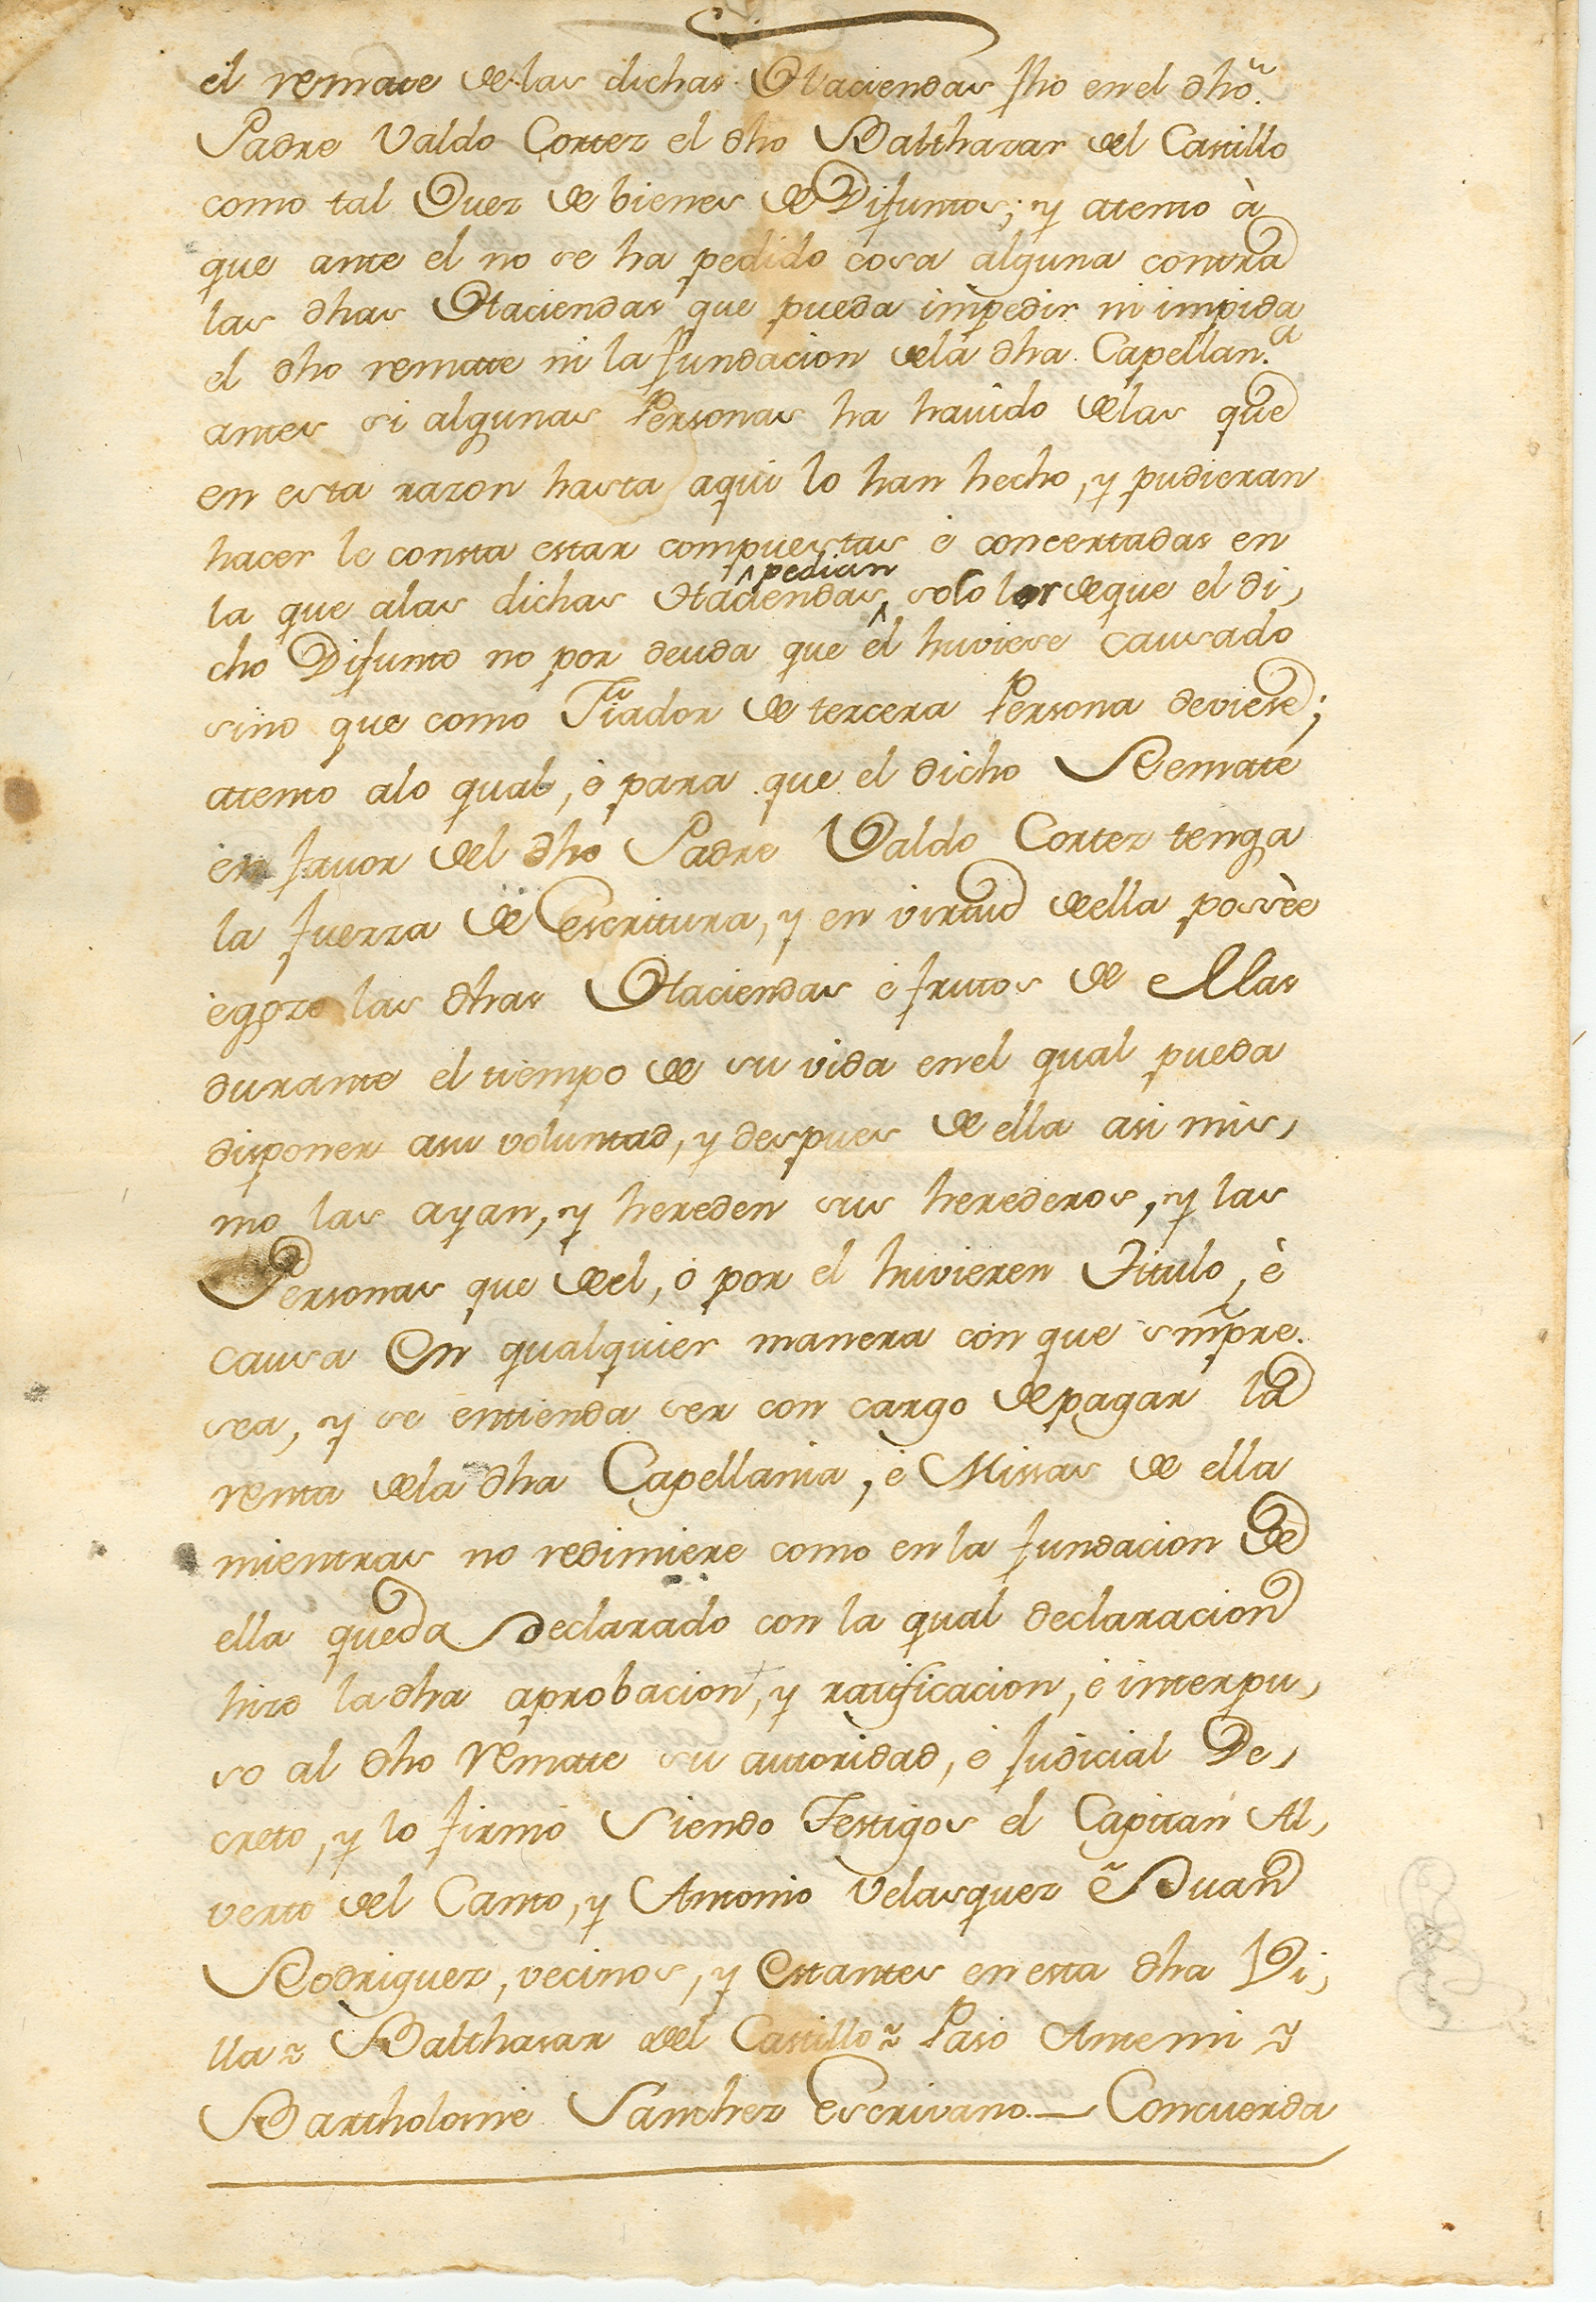 el remate de las dichas Haciendas fho en el dhõ.
Padre Valdo Cortez el dho Balthazar del Castillo
como tal Juez de bienes de Difuntos; y atento à
que ante el no se ha pedido cosa alguna contra
las dhas Haciendas que pueda impedir ni impida
el dho remate ni la fundacion dela dha Capellan.ª
antes si algunas Personas ha havido delas que
en esta razon hasta aqui lo han hecho, y pudieran
hacer le consta estar compuestas è concertadas en
la que alas dichas Haciendas ^pedian solo lo deque el di,
cho Difunto no por deuda que èl huviese causado
sino que como Fiador de tercera Persona deviese;
atento alo qual, è para que el dicho Remate
en favor del dho Padre Valdo Cortez tenga
la fuerza de Escritura, y en virtud deella possèe
egoze las dhas Haciendas è frutos de ellas
durante el tiempo de su vida enel qual pueda
disponer asu voluntad, y despues de ella asi mis,
mo las ayan, y hereden sus herederos, y las
Personas que deel, ò por el huvieren Titulo, è
causa en qualquier manera con que smpre.
sea, y se entienda ser con cargo depagar la
renta dela dha Capellania, è Missas de ella
mientras no redimiere como en la fundacion de
ella queda declarado con la qual declaracion
hizo la dha aprobacion, y ratificacion, è interpu,
so al dho remate su autoridad, è Judicial De,
creto, y lo firmò siendo Testigos el Capitan Al,
verto del Canto, y Antonio Velasquez è Juan
Rodriguez, vecinos, y estantes en esta dha Vi,
lla ~ Balthasar del Castillo ~ Pasò Ante mi ~
Bartholome Sanchez Escrivano. — Concuerda